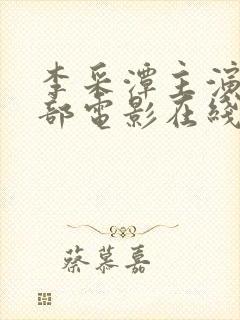 李采潭主演
部电影在线
蔡慕嘉